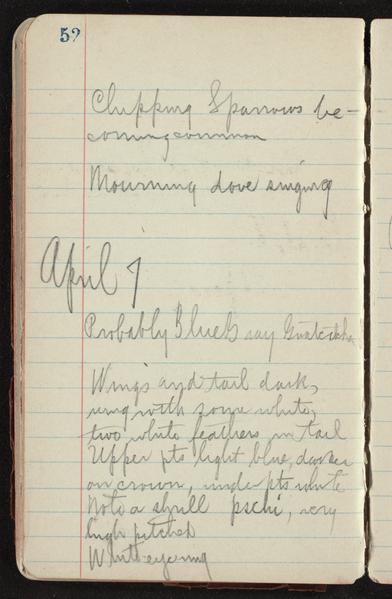 52
Chipping Sparrows be-
coming common
Mourning dove singing
April 7
Probably Blue gray Gnatcatcher
Wings and tail dark,
wing with some white,
two white feathers in tail
Upper pts light blue, darker
on crown, under pts white
Note a shrill pschi, very
high pitched
White eyering